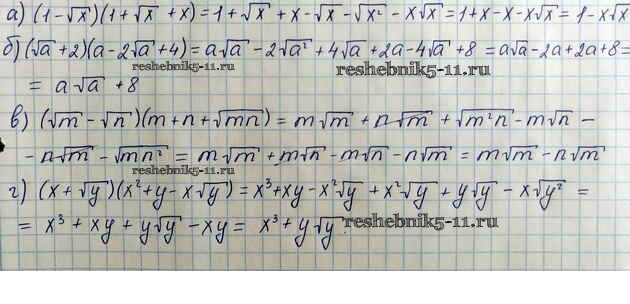 а) (1-√x)(1+√x +x)=1+√x+x-√x-√x²-x√x=1+x-x-x√x=1-x√x
б) (√a+2)(a-2√a+4)=a√a-2√a²+4√a+2a-4√a+8=a√a-2a+2a+8=
reshebnik5-11.ru
reshebnik5-11.ru
= a√a +8
в) (√m-√n)(m+n+√mn)=m√m+n√m+√m²n-m√n-
-n√m-√mn²=m√m+m√n-m√n-n√m=m√m-n√m
reshebnik5-11.ru
г) (x+√y)(x²+y-x√y)=x³+xy-x²√y+x²√y+y√y-x√y²=
= x³+xy+y√y-xy= x³+y√y
reshebnik5-11.ru
reshebnik5-11.ru